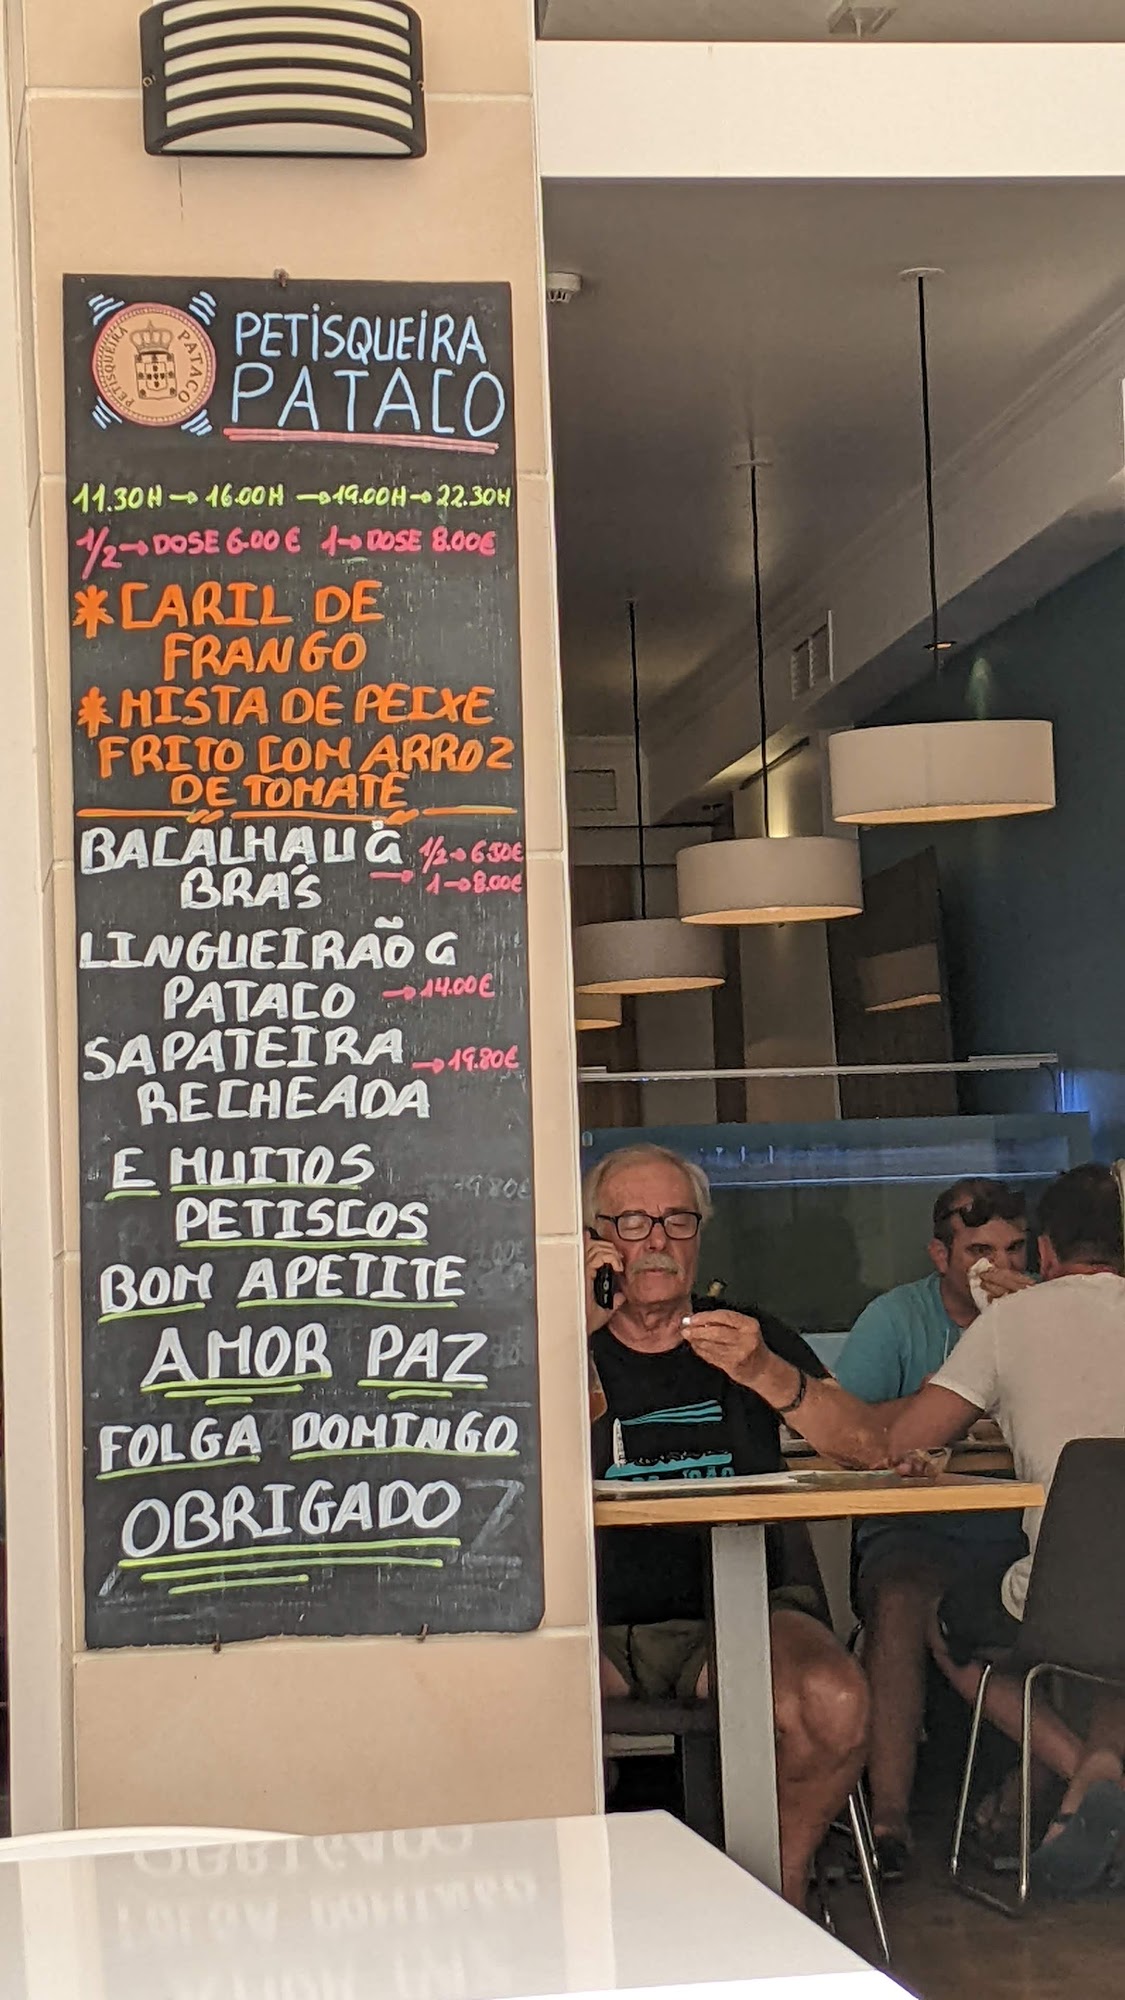 PETISQUEIRA PATACO
PETISQUEIRA
PATACO
11.30H → 16.00H → 19.00H → 22.30H
1/2 → DOSE 6.00€ 1 → DOSE 8.00€
* CARIL DE
FRANGO
* MISTA DE PEIXE
FRITO COM ARROZ
DE TOMATE
BACALHAU Á 1/2 → 6.50€
BRÁS → 1 → 8.00€
LINGUEIRÃO Á
PATACO → 14.00€
SAPATEIRA → 19.80€
RECHEADA
E MUITOS
PETISCOS
BOM APETITE
AMOR PAZ
FOLGA DOMINGO
OBRIGADO